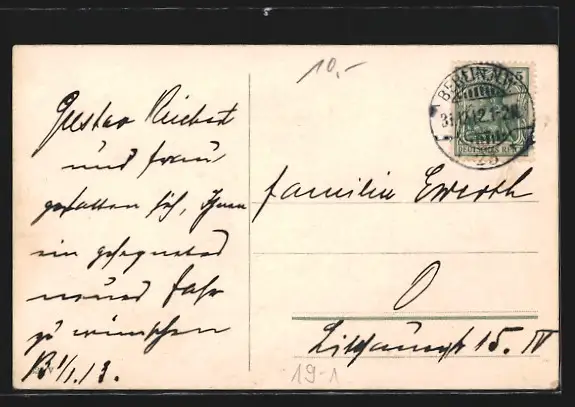 10,-
BERLIN N.W.
31.12.12.1-2N.
DEUTSCHES REICH
Gustav Reichert
und Frau
gestatten sich, Ihnen
ein gesegnetes
neues Jahr
zu wünschen
B 1/1.13.
Familie Ewerth
O
15. IV
19-1